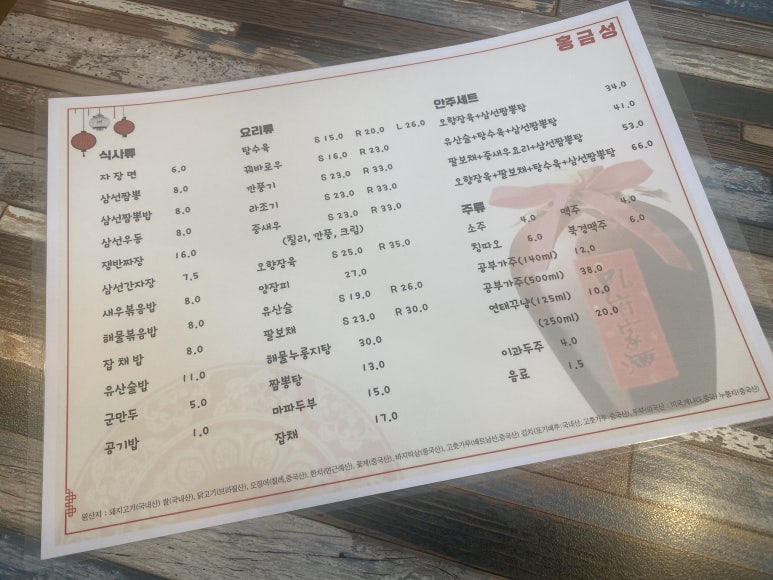 홍금성
식사류
자장면 6.0
삼선짬뽕 8.0
삼선짬뽕밥 8.0
삼선우동 8.0
쟁반짜장 16.0
삼선간자장 7.5
새우볶음밥 8.0
해물볶음밥 8.0
잡채밥 8.0
유산슬밥 11.0
군만두 5.0
공기밥 1.0
요리류
탕수육 S 15.0 R 20.0 L 26.0
꿔바로우 S 16.0 R 23.0
깐풍기 S 23.0 R 33.0
라조기 S 23.0 R 33.0
중새우 S 23.0 R 33.0
(칠리, 깐풍, 크림)
오향장육 S 25.0 R 35.0
양장피 27.0
유산슬 S 19.0 R 26.0
팔보채 S 23.0 R 30.0
해물누룽지탕 30.0
짬뽕탕 13.0
마파두부 15.0
잡채 17.0
안주세트
오향장육+삼선짬뽕탕 34.0
유산슬+탕수육+삼선짬뽕탕 41.0
팔보채+중새우요리+삼선짬뽕탕 53.0
오향장육+팔보채+탕수육+삼선짬뽕탕 66.0
주류
소주 4.0 맥주 4.0
칭따오 6.0 북경맥주 6.0
공부가주(140ml) 12.0
공부가주(500ml) 38.0
연태꾸냥(125ml) 10.0
(250ml) 20.0
이과두주 4.0
음료 1.5
원산지 : 돼지고기(국내산) 쌀(국내산), 닭고기(브라질산), 오징어(칠레,중국산), 한치(만근해산), 꽃게(중국산), 바지락살(중국산), 고춧가루(베트남산,중국산) 김치(포기배추:국내산, 고춧가루:중국산), 두부(외국산 : 미국,캐나다,중국) 누룽지(중국산)